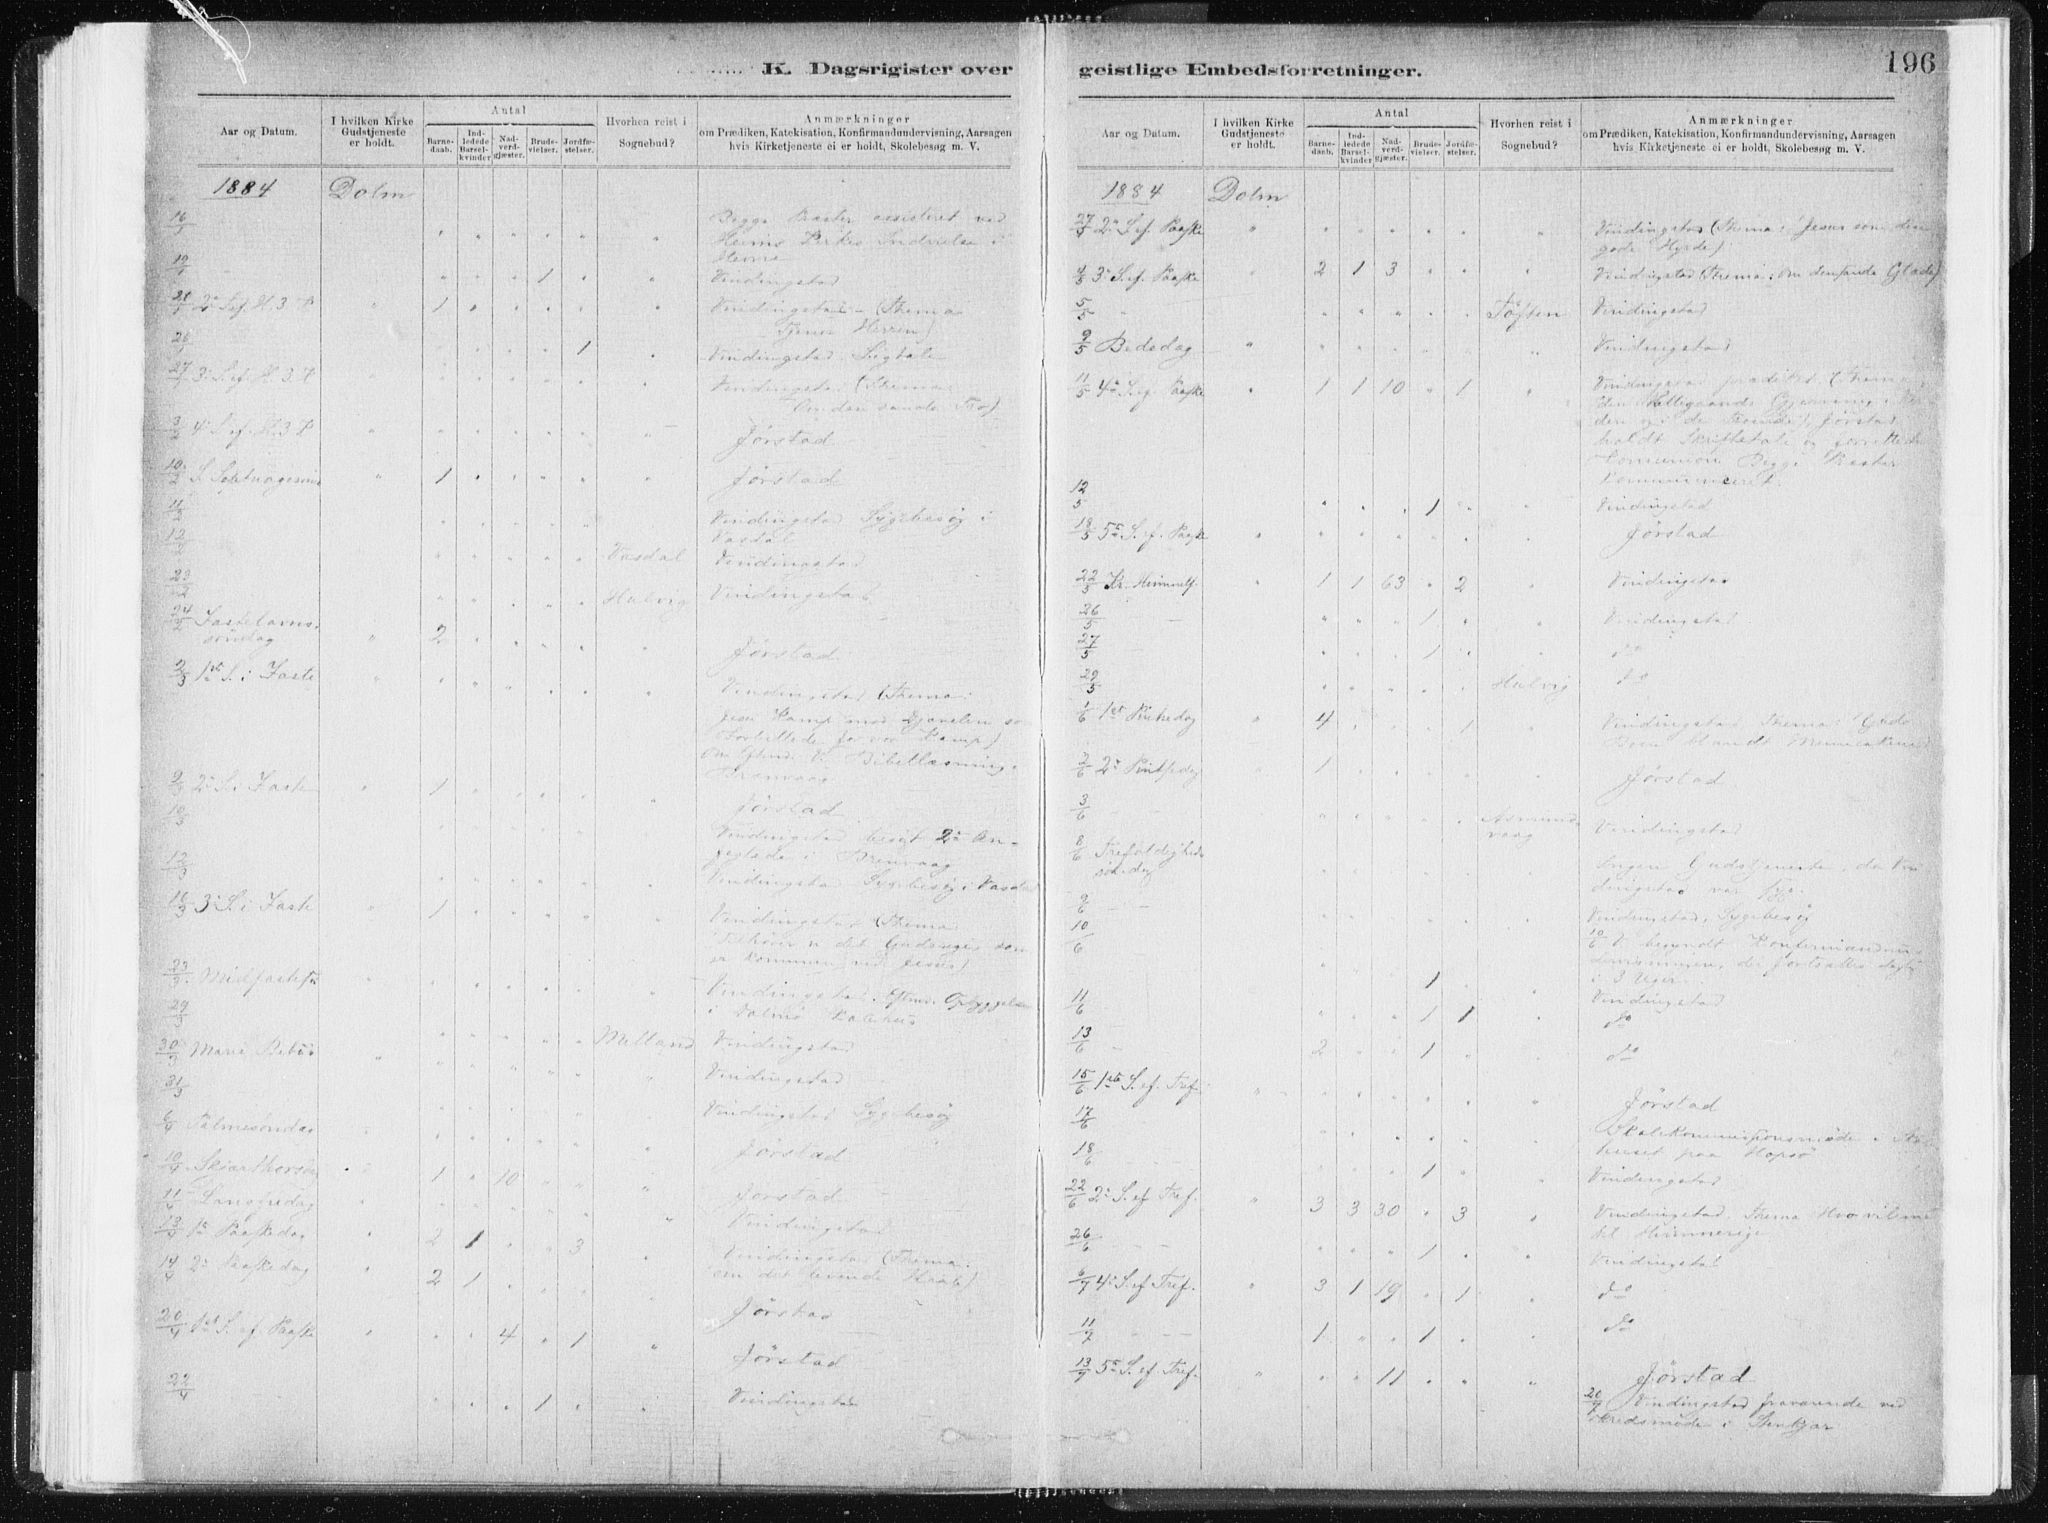 K. Dagsrigister over
Aar og Datum.
I hvilken Kirke Gudstjeneste er holdt.
Antal
Barnedaab.
Indledede Barselkvinder
Nadverdgjæster.
Brudevielser.
Jordfæstelser.
Hvorhen reist i Sognebud?
Anmærkninger
om Prædiken, Katekisation, Konfirmandundervisning, Aarsagen
hvis Kirketjeneste ei er holdt, Skolebesøg m. V.
1884 Dolm
16/1 Begge Præster assisteret ved
Hemnes Kirkes Indvielse i
Hemne
19/1 1 Vindingstad
20/1 2n S. ef. H. 3 K 1 Vindingstad (Thema
Tjener Herren)
26/1 1 Vindingstad Ligtale
27/1 3. S. ef. H. 3. K Vindingstad (Thema
Om den sande Tro)
3/2 4. S. ef. H. 3 K Jørstad
10/2 S. Septuagesima 1 Jørstad
11/2 Vindingstad Sygebesøg i
Vasdal
12/2 Vasdal Vindingstad
23/2 Hulvig Vindingstad
24/2 Fastelavns-
søndag 2 Jørstad
2/3 1st S. i Faste Vindingstad (Thema:
Jesu Kamp mod Djævelen som
Forbillede for vor Kamp)
Bibellæsning i
9/2 2n S. i Faste 1 Jørstad
10/3 Vindingstad
12/3 Vindingstad Sygebesøg i Vasdal
16/3 3. S. i Faste 1 Vindingstad (Thema
er kommen ved Jesus)
23/3 Midfaste Vindingstad. Eftmd. Opbyggelse
29/3 Melland Vindingstad
30/3 Mariæ Beb. Vindingstad
31/3 Vindingstad Sygebesøg
6/4 Palmesøndag Jørstad
10/4 Skjærthorsdag 1 10 Jørstad
11/4 Langfredag Vindingstad
13/4 1n Paaskedag 2 1 3 Vindingstad (Thema:
om det levende Haab)
14/4 2n Paaskedag 2 1 Jørstad
20/4 1st S. ef. Paaske 4 1 Jørstad
22/4 1 Vindingstad
geistlige Embedsforretninger.
196
Aar og Datum.
I hvilken Kirke Gudstjeneste er holdt.
Antal
Barnedaab.
Indledede Barselkvinder
Nadverdgjæster.
Brudevielser.
Jordfæstelser.
Hvorhen reist i Sognebud?
Anmærkninger
om Prædiken, Katekisation, Konfirmandundervisning, Aarsagen
hvis Kirketjeneste ei er holdt, Skolebesøg m. V.
1884 Dolm
27/4 2n S. ef. Paaske Vindingstad (Thema: Jesus som den
gode Hyrde)
4/5 3. S. ef. Paaske 2 1 3 Vindingstad (Thema: Om den sande Glæde)
5/5 Tøften Vindingstad
9/5 Bededag Vindingstad
11/5 4n S. ef. Paaske 1 1 10 1 Vindingstad prædiket (Thema:
Den Helligaands Gjerning i Ver-
den og i de Troende) Jørstad
holdt Skriftetale og forrettede
Communion Begge Præster
kommuniceret.
12/5 1 Vindingstad
18/5 5n S. ef. Paaske Jørstad
22/5 Kr. Himmelf. 1 1 63 2 Vindingstad
26/5 1 Vindingstad
27/5 1 do
29/5 Hulvig do
1/6 1st Pintsedag 4 1 Vindingstad Thema: Guds
blandt Menneskene
2/6 2n Pintsedag 1 Jørstad
3/6 Asmund-
vaag Vindingstad
8/6 Trefoldigheds
søndag Ingen Gudstjeneste, da Vin
dingstad var syg.
9/6 Vindingstad, Sygebesøg
10/6 1 10/6 V. begyndt Konfirmandun-
dervisningen, der fortsattes daglig
i 3 Uger.
11/6 1 1 Vindingstad
do
13/6 2 1 do
15/6 1st S. ef. Tref. Jørstad
17/6 Skolekommissionsmøde i
huset paa Hopsø
18/6 1 Vindingstad
22/6 2. S. ef Tref. 3 3 30 3 Vindingstad. Thema
til Himmerige
26/6 1 Vindingstad
6/7 4. S. ef Tref. 3 1 19 1 do
11/7 1 1 do
13/7 5n S. ef Tref. 11 Jørstad
20/7 Vindingstad fraværende ved
Kredsmøde i Stenkjær